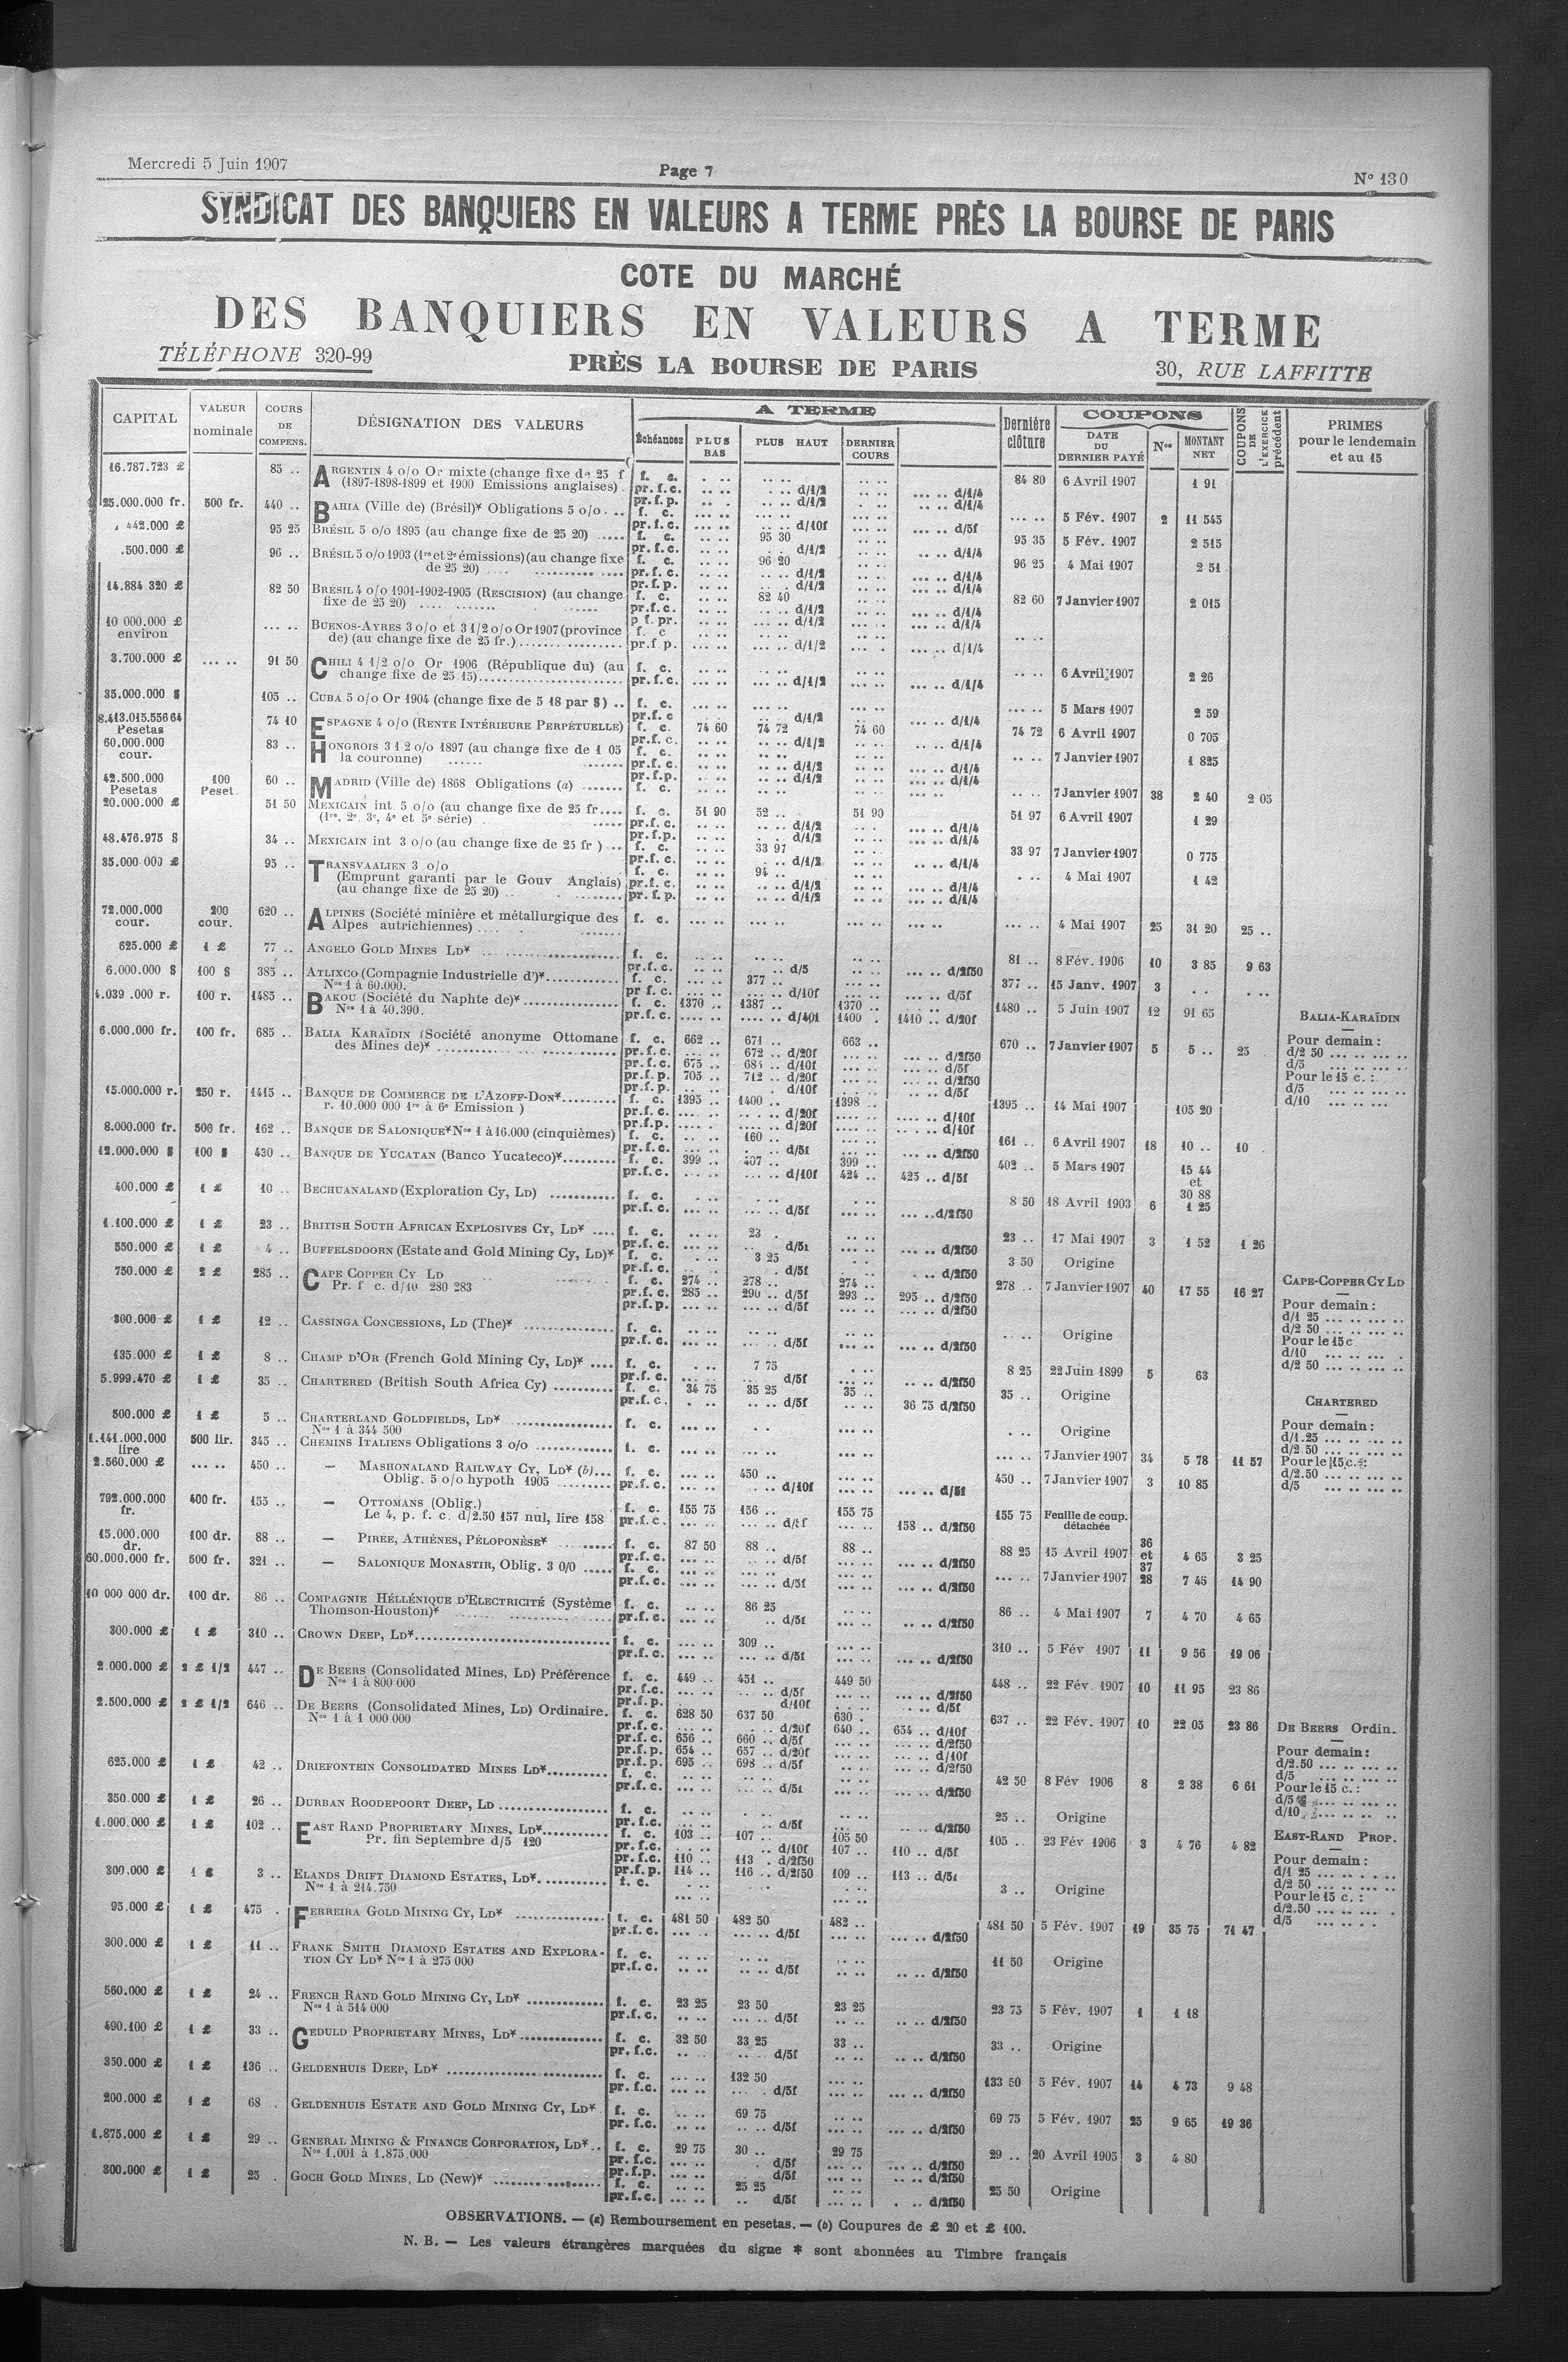 Mercredi 5 Juin 1907
Page 7
N° 130
SYNDICAT DES BANQUIERS EN VALEURS A TERME PRÈS LA BOURSE DE PARIS
COTE DU MARCHÉ
DES BANQUIERS EN VALEURS A TERME
TÉLÉPHONE 320-99
PRÈS LA BOURSE DE PARIS
30, RUE LAFFITTE
CAPITAL | VALEUR nominale | COURS DE COMPENS. | DÉSIGNATION DES VALEURS | A TERME | Dernière clôture | COUPONS | COUPONS DE L'EXERCICE précédent | PRIMES pour le lendemain et au 15
Échéances | PLUS BAS | PLUS HAUT | DERNIER COURS | DATE DU DERNIER PAYÉ | Nos | MONTANT NET
16.787.723 £ 85 .. ARGENTIN 4 o/o Or mixte (change fixe de 25 f f. c. 84 80 6 Avril 1907 1 91
(1897-1898-1899 et 1900 Emissions anglaises) pr.f.c. d/1/2 d/1/4
25.000.000 fr. 500 fr. 440 .. BAHIA (Ville de) (Brésil)* Obligations 5 o/o f. c. 5 Fév. 1907 2 11 545
442.000 £ 95 25 BRÉSIL 5 o/o 1895 (au change fixe de 25 20) f. c. 95 30 95 35 5 Fév. 1907 2 515
.500.000 £ 96 .. BRÉSIL 5 o/o 1903 (1re et 2e émissions) (au change fixe f. c. 96 20 96 25 4 Mai 1907 2 51
de 25 20)
14.884 320 £ 82 50 BRÉSIL 4 o/o 1901-1902-1905 (RESCISION) (au change f. c. 82 40 82 60 7 Janvier 1907 2 015
fixe de 25 20)
10 000.000 £ environ BUENOS-AYRES 3 o/o et 3 1/2 o/o Or 1907 (province f. c
de) (au change fixe de 25 fr.) pr.f.p. d/1/2 d/1/4
3.700.000 £ 91 50 CHILI 4 1/2 o/o Or 1906 (République du) (au f. c. 6 Avril 1907 2 26
change fixe de 25 15) pr.f.c. d/1/2 d/1/4
35.000.000 $ 105 .. CUBA 5 o/o Or 1904 (change fixe de 5 18 par $) f. c. 5 Mars 1907 2 59
8.413.015.556 64 Pesetas 74 10 ESPAGNE 4 o/o (RENTE INTÉRIEURE PERPÉTUELLE) f. c. 74 60 74 72 74 60 74 72 6 Avril 1907 0 705
60.000.000 cour. 83 .. HONGROIS 3 1 2 o/o 1897 (au change fixe de 1 05 f. c. 7 Janvier 1907 1 825
la couronne) pr.f.c. d/1/2 d/1/4
42.500.000 Pesetas 100 Peset. 60 .. MADRID (Ville de) 1868 Obligations (a) f. c. 7 Janvier 1907 38 2 40 2 05
20.000.000 £ 51 50 MEXICAIN int. 5 o/o (au change fixe de 25 fr f. c. 51 90 52 .. 51 90 51 97 6 Avril 1907 1 29
(1re, 2e, 3e, 4e et 5e série) pr.f.c. d/1/2 d/1/4
48.476.975 $ 34 .. MEXICAIN int 3 o/o (au change fixe de 25 fr ) f. c. 33 97 33 97 7 Janvier 1907 0 775
35.000 000 £ 95 .. TRANSVAALIEN 3 o/o f. c. 94 .. 4 Mai 1907 1 42
(Emprunt garanti par le Gouv Anglais) pr.f.c. d/1/2 d/1/4
(au change fixe de 25 20) pr.f.p. d/1/2 d/1/4
72.000.000 cour. 200 cour. 620 .. ALPINES (Société minière et métallurgique des f. c. 4 Mai 1907 25 31 20 25 ..
Alpes autrichiennes)
625.000 £ 1 £ 77 .. ANGELO GOLD MINES LD* f. c. 81 .. 8 Fév. 1906 10 3 85 9 63
pr.f.c. d/5 d/2f50
6.000.000 $ 100 $ 385 .. ATLIXCO (Compagnie Industrielle d')* f. c. 377 .. 377 .. 15 Janv. 1907 3
Nos 1 à 60.000. pr f.c. d/10f d/5f
4.039 .000 r. 100 r. 1485 .. BAKOU (Société du Naphte de)* f. c. 1370 .. 1387 .. 1370 .. 1480 .. 5 Juin 1907 12 91 65
Nos 1 à 40.390. pr.f.c. d/40f 1400 . 1410 .. d/20f
6.000.000 fr. 100 fr. 685 .. BALIA KARAÏDIN (Société anonyme Ottomane f. c. 662 .. 671 .. 663 .. 670 .. 7 Janvier 1907 5 5 .. 25
des Mines de)* pr.f.c. 672 .. d/20f d/2f50
pr.f.c. 675 .. 685 .. d/10f d/5f
pr.f.p 705 .. 712 .. d/20f d/2f50
pr.f.p. d/10f d/5f
15.000.000 r. 250 r. 1415 .. BANQUE DE COMMERCE DE L'AZOFF-DON* f. c. 1395 .. 1400 .. 1398 .. 1395 .. 14 Mai 1907 105 20
r. 10.000 000 1re à 6e Emission ) pr.f.c. d/20f d/10f
pr.f.p. d/20f d/10f
8.000.000 fr. 500 fr. 162 .. BANQUE DE SALONIQUE* Nos 1 à 16.000 (cinquièmes) f. c. 160 .. 161 .. 6 Avril 1907 18 10 .. 10
pr.f.c. d/5f d/2f50
12.000.000 $ 100 $ 430 .. BANQUE DE YUCATAN (Banco Yucateco)* f. c. 399 .. 407 .. 399 .. 402 .. 5 Mars 1907 15 44 et 30 88
pr.f.c. d/10f 424 .. 425 .. d/5f
400.000 £ 1 £ 10 .. BECHUANALAND (Exploration Cy, LD) f. c. 8 50 18 Avril 1903 6 1 25
pr.f.c. d/5f d/2f50
1.100.000 £ 1 £ 23 .. BRITISH SOUTH AFRICAN EXPLOSIVES CY, LD* f. c. 23 . 23 .. 17 Mai 1907 3 1 52 1 26
550.000 £ 1 £ 4 .. BUFFELSDOORN (Estate and Gold Mining Cy, LD)* f. c. 3 25 3 50 Origine
750.000 £ 2 £ 285 .. CAPE COPPER CY LD f. c. 274 .. 278 .. 274 .. 278 .. 7 Janvier 1907 40 17 55 16 27
Pr. f c. d/10 280 283 pr.f.c. 285 .. 290 .. d/5f 293 .. 295 .. d/2f50
pr.f.p. d/5f d/2f50
300.000 £ 1 £ 12 .. CASSINGA CONCESSIONS, LD (The)* f. c. Origine
pr.f.c. d/5f d/2f50
135.000 £ 1 £ 8 .. CHAMP D'OR (French Gold Mining Cy, LD)* f. c. 7 75 8 25 22 Juin 1899 5 63
pr.f.c. d/5f d/2f50
5.999.470 £ 1 £ 35 .. CHARTERED (British South Africa Cy) f. c. 34 75 35 25 35 .. 35 .. Origine
pr.f.c. d/5f 36 75 d/2f50
500.000 £ 1 £ 5 .. CHARTERLAND GOLDFIELDS, LD* f. c. Origine
Nos 1 à 344 500
1.141.000.000 lire 500 lir. 345 .. CHEMINS ITALIENS Obligations 3 o/o f. c. 7 Janvier 1907 34 5 78 11 57
2.560.000 £ 450 .. — MASHONALAND RAILWAY CY, LD* (b) f. c. 450 .. 450 .. 7 Janvier 1907 3 10 85
Oblig. 5 o/o hypoth 1905 pr.f.c. d/10f d/5f
792.000.000 fr. 400 fr. 155 .. — OTTOMANS (Oblig.) f. c. 155 75 156 .. 155 75 155 75 Feuille de coup. détachée
Le 4, p. f. c. d/2.50 157 nul, lire 158 pr.f.c. 158 .. d/2f50
15.000.000 dr. 100 dr. 88 .. — PIREE, ATHÈNES, PÉLOPONÈSE* f. c. 87 50 88 .. 88 .. 88 25 15 Avril 1907 36 et 37 4 65 3 25
pr.f.c. d/5f d/2f50
60.000.000 fr. 500 fr. 321 .. — SALONIQUE MONASTIR, Oblig. 3 0/0 f. c. 7 Janvier 1907 28 7 45 14 90
pr.f.c. d/5f d/2f50
10 000 000 dr. 100 dr. 86 .. COMPAGNIE HÉLLÉNIQUE D'ELECTRICITÉ (Système f. c. 86 25 86 .. 4 Mai 1907 7 4 70 4 65
Thomson-Houston)* pr.f.c. d/5f d/2f50
300.000 £ 1 £ 310 .. CROWN DEEP, LD* f. c. 309 .. 310 .. 5 Fév 1907 11 9 56 19 06
pr.f.c. d/5f d/2f50
2.000.000 £ 2 £ 1/2 447 .. DE BEERS (Consolidated Mines, LD) Préférence f. c. 449 .. 451 .. 449 50 448 .. 22 Fév. 1907 10 11 95 23 86
Nos 1 à 800 000 pr.f.c. d/5f d/2f50
pr.f.p. d/10f d/5f
2.500.000 £ 2 £ 1/2 646 .. DE BEERS (Consolidated Mines, LD) Ordinaire. f. c. 628 50 637 50 630 . 637 .. 22 Fév. 1907 10 22 05 23 86
Nos 1 à 1 000 000 pr.f.c. d/20f 640 .. 654 .. d/10f
pr.f.c. 656 .. 660 .. d/5f d/2f50
pr.f.p. 654 .. 657 .. d/20f d/10f
pr.f.p. 695 .. 698 .. d/5f d/2f50
625.000 £ 1 £ 42 .. DRIEFONTEIN CONSOLIDATED MINES LD* f. c. 42 50 8 Fév 1906 8 2 38 6 61
pr.f.c. d/5f d/2f50
350.000 £ 1 £ 26 .. DURBAN ROODEPOORT DEEP, LD f. c. 25 .. Origine
pr.f.c. d/5f d/2f50
1.000.000 £ 1 £ 102 .. EAST RAND PROPRIETARY MINES, LD* f. c. 103 .. 107 .. 105 50 105 .. 23 Fév 1906 3 4 76 4 82
Pr. fin Septembre d/5 120 pr.f.c. d/10f 107 .. 110 .. d/5f
pr.f.c. 110 .. 113 . d/2f50
pr.f.p. 114 .. 116 .. d/2f50 109 .. 113 .. d/5f
300.000 £ 1 £ 3 .. ELANDS DRIFT DIAMOND ESTATES, LD* f. c. 3 .. Origine
Nos 1 à 214.750
95.000 £ 1 £ 475 . FERREIRA GOLD MINING CY, LD* f. c. 481 50 482 50 482 .. 481 50 5 Fév. 1907 19 35 75 71 47
pr.f.c. d/5f d/2f50
300.000 £ 1 £ 11 .. FRANK SMITH DIAMOND ESTATES AND EXPLORA- f. c. 11 50 Origine
TION CY LD* Nos 1 à 275 000 pr.f.c. d/5f d/2f50
560.000 £ 1 £ 24 .. FRENCH RAND GOLD MINING CY, LD* f. c. 23 25 23 50 23 25 23 75 5 Fév. 1907 1 1 18
Nos 1 à 514 000 pr.f.c. d/5f d/2f50
490.100 £ 1 £ 33 .. GEDULD PROPRIETARY MINES, LD* f. c. 32 50 33 25 33 .. 33 .. Origine
pr.f.c. d/5f d/2f50
350.000 £ 1 £ 136 .. GELDENHUIS DEEP, LD* f. c. 132 50 133 50 5 Fév. 1907 14 4 73 9 48
pr.f.c. d/5f d/2f50
200.000 £ 1 £ 68 .. GELDENHUIS ESTATE AND GOLD MINING CY, LD* f. c. 69 75 69 75 5 Fév. 1907 25 9 65 19 36
pr.f.c. d/5f d/2f50
1.875.000 £ 1 £ 29 .. GENERAL MINING & FINANCE CORPORATION, LD* f. c. 29 75 30 .. 29 75 29 .. 20 Avril 1905 3 4 80
Nos 1.001 à 1.875.000 pr.f.c. d/5f d/2f50
pr.f.p. d/5f d/2f50
300.000 £ 1 £ 25 . GOCH GOLD MINES, LD (New)* f. c. 25 25 25 50 Origine
pr.f.c. d/5f d/2f50
BALIA-KARAÏDIN
Pour demain :
d/2 50
d/5
Pour le 15 c. :
d/5
d/10
CAPE-COPPER CY LD
Pour demain :
d/1 25
d/2 50
Pour le 15 c
d/10
d/2 50
CHARTERED
Pour demain :
d/1.25
d/2 50
Pour le 15 c. :
d/2.50
d/5
DE BEERS Ordin.
Pour demain :
d/2.50
d/5
Pour le 15 c. :
d/5
d/10
EAST-RAND PROP.
Pour demain :
d/1 25
d/2 50
Pour le 15 c. :
d/2.50
d/5
OBSERVATIONS. — (a) Remboursement en pesetas. — (b) Coupures de £ 20 et £ 100.
N. B. — Les valeurs étrangères marquées du signe * sont abonnées au Timbre français